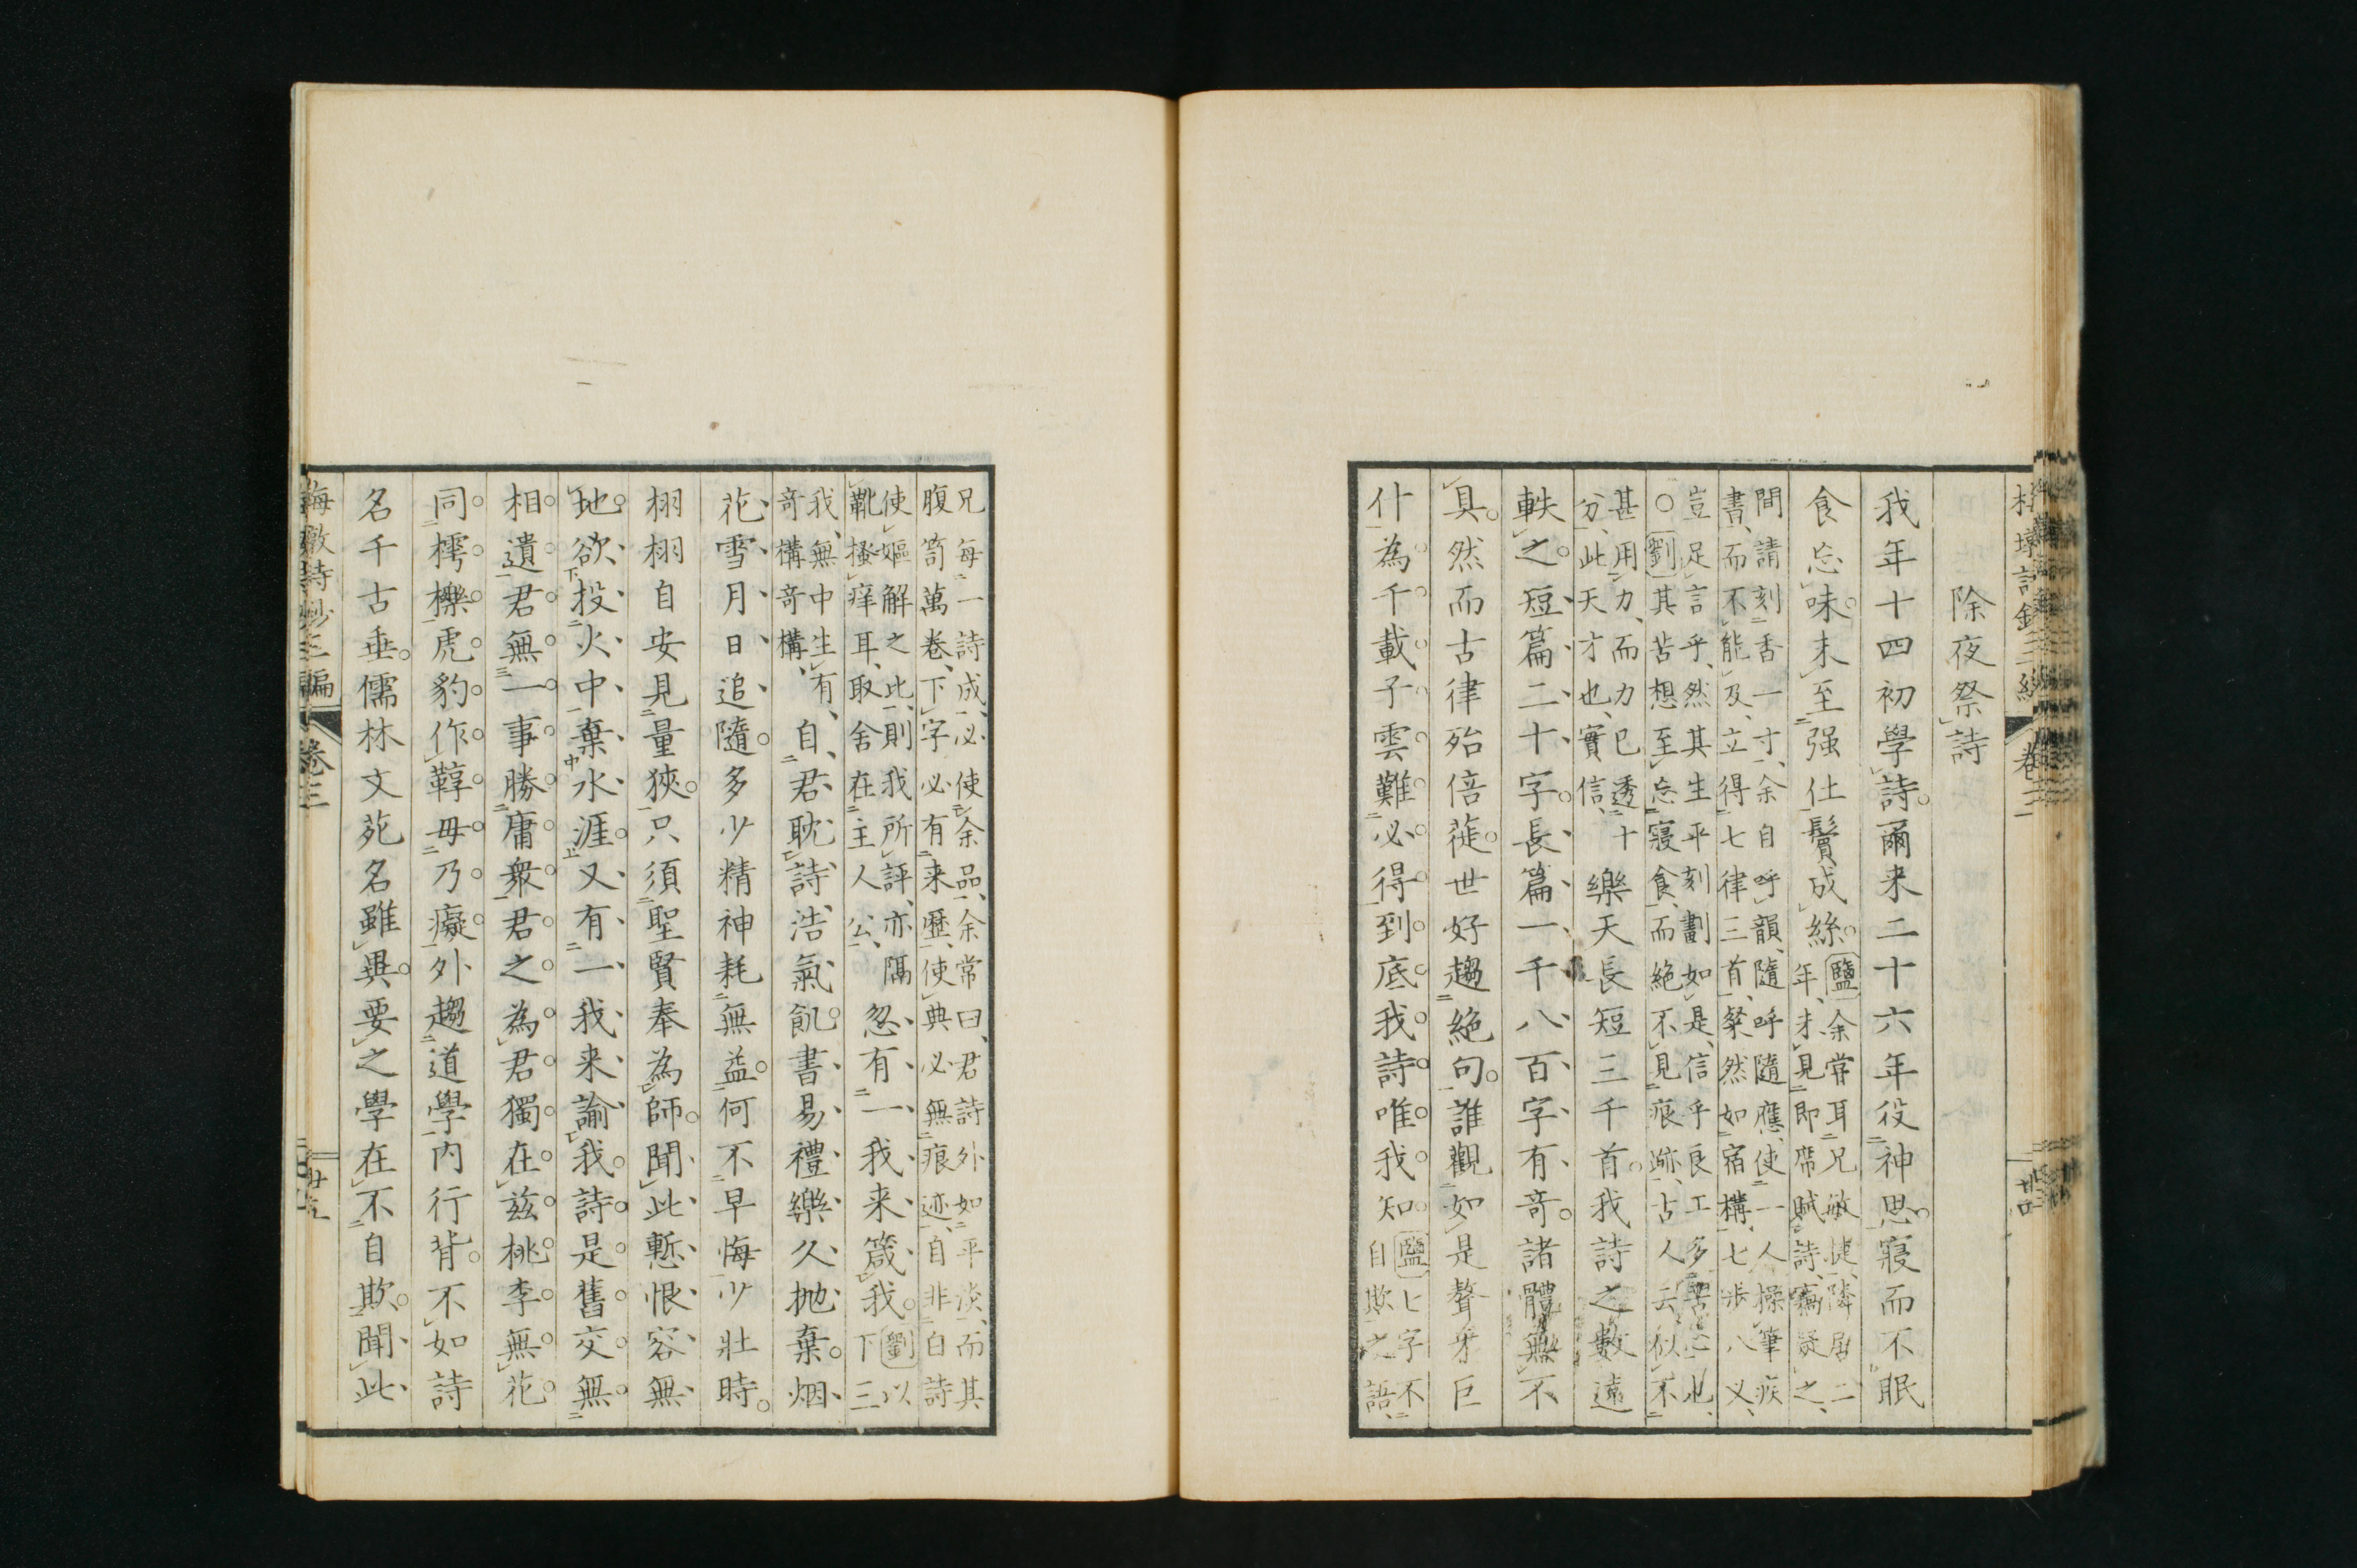 除夜祭詩
我年十四初學詩爾来二十六年役神思寢而不眠
食忘味未至强仕鬢成絲
鹽余常耳兄敏捷隣居二
年才見即席賦詩竊疑之
間請刻香一寸余自呼韻隨呼隨應使一人操筆疾
書而不能及立得七律三首粲然如宿構七歩八义
豈足言乎然其生平刻劃如是信乎良工多苦心也
○劉其苦想至忘寢食而絶不見痕跡古人云似不
甚用力而力已透十
分此天才也實信
樂天長短三千首我詩之數遠
軼之短篇二十字長篇一千八百字有奇諸體無不
具然而古律殆倍蓰世好趨絶句誰觀如是聱牙巨
什為千載子雲難必得到底我詩唯我知
鹽七字不
自欺之語
兄每一詩成必使余品余常曰君詩外如平淡而其
腹笥萬卷下字必有来歷使典必無痕迹自非白詩
使嫗解之比則我所評亦隔
靴搔痒耳取舍在主人公
忽有一我来箴我
劉以
下三
我無中生有
奇構奇構
自君耽詩浩氣飢書易禮樂久抛棄烟
花雪月日追隨多少精神耗無益何不早悔少壯時
栩栩自安見量狹只須聖賢奉為師聞此慙恨容無
地欲投火中棄水涯又有一我来諭我詩是舊交無
相遺君無一事勝庸衆君之為君獨在兹桃李無花
同樗櫟虎豹作鞟毋乃癡外趨道學内行背不如詩
名千古垂儒林文苑名雖異要之學在不自欺聞此
梅墩詩鈔三編 卷三